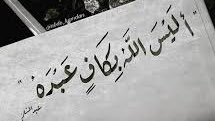 " أليس اللَّهُ بِكَافٍ عَبْدَهُ "